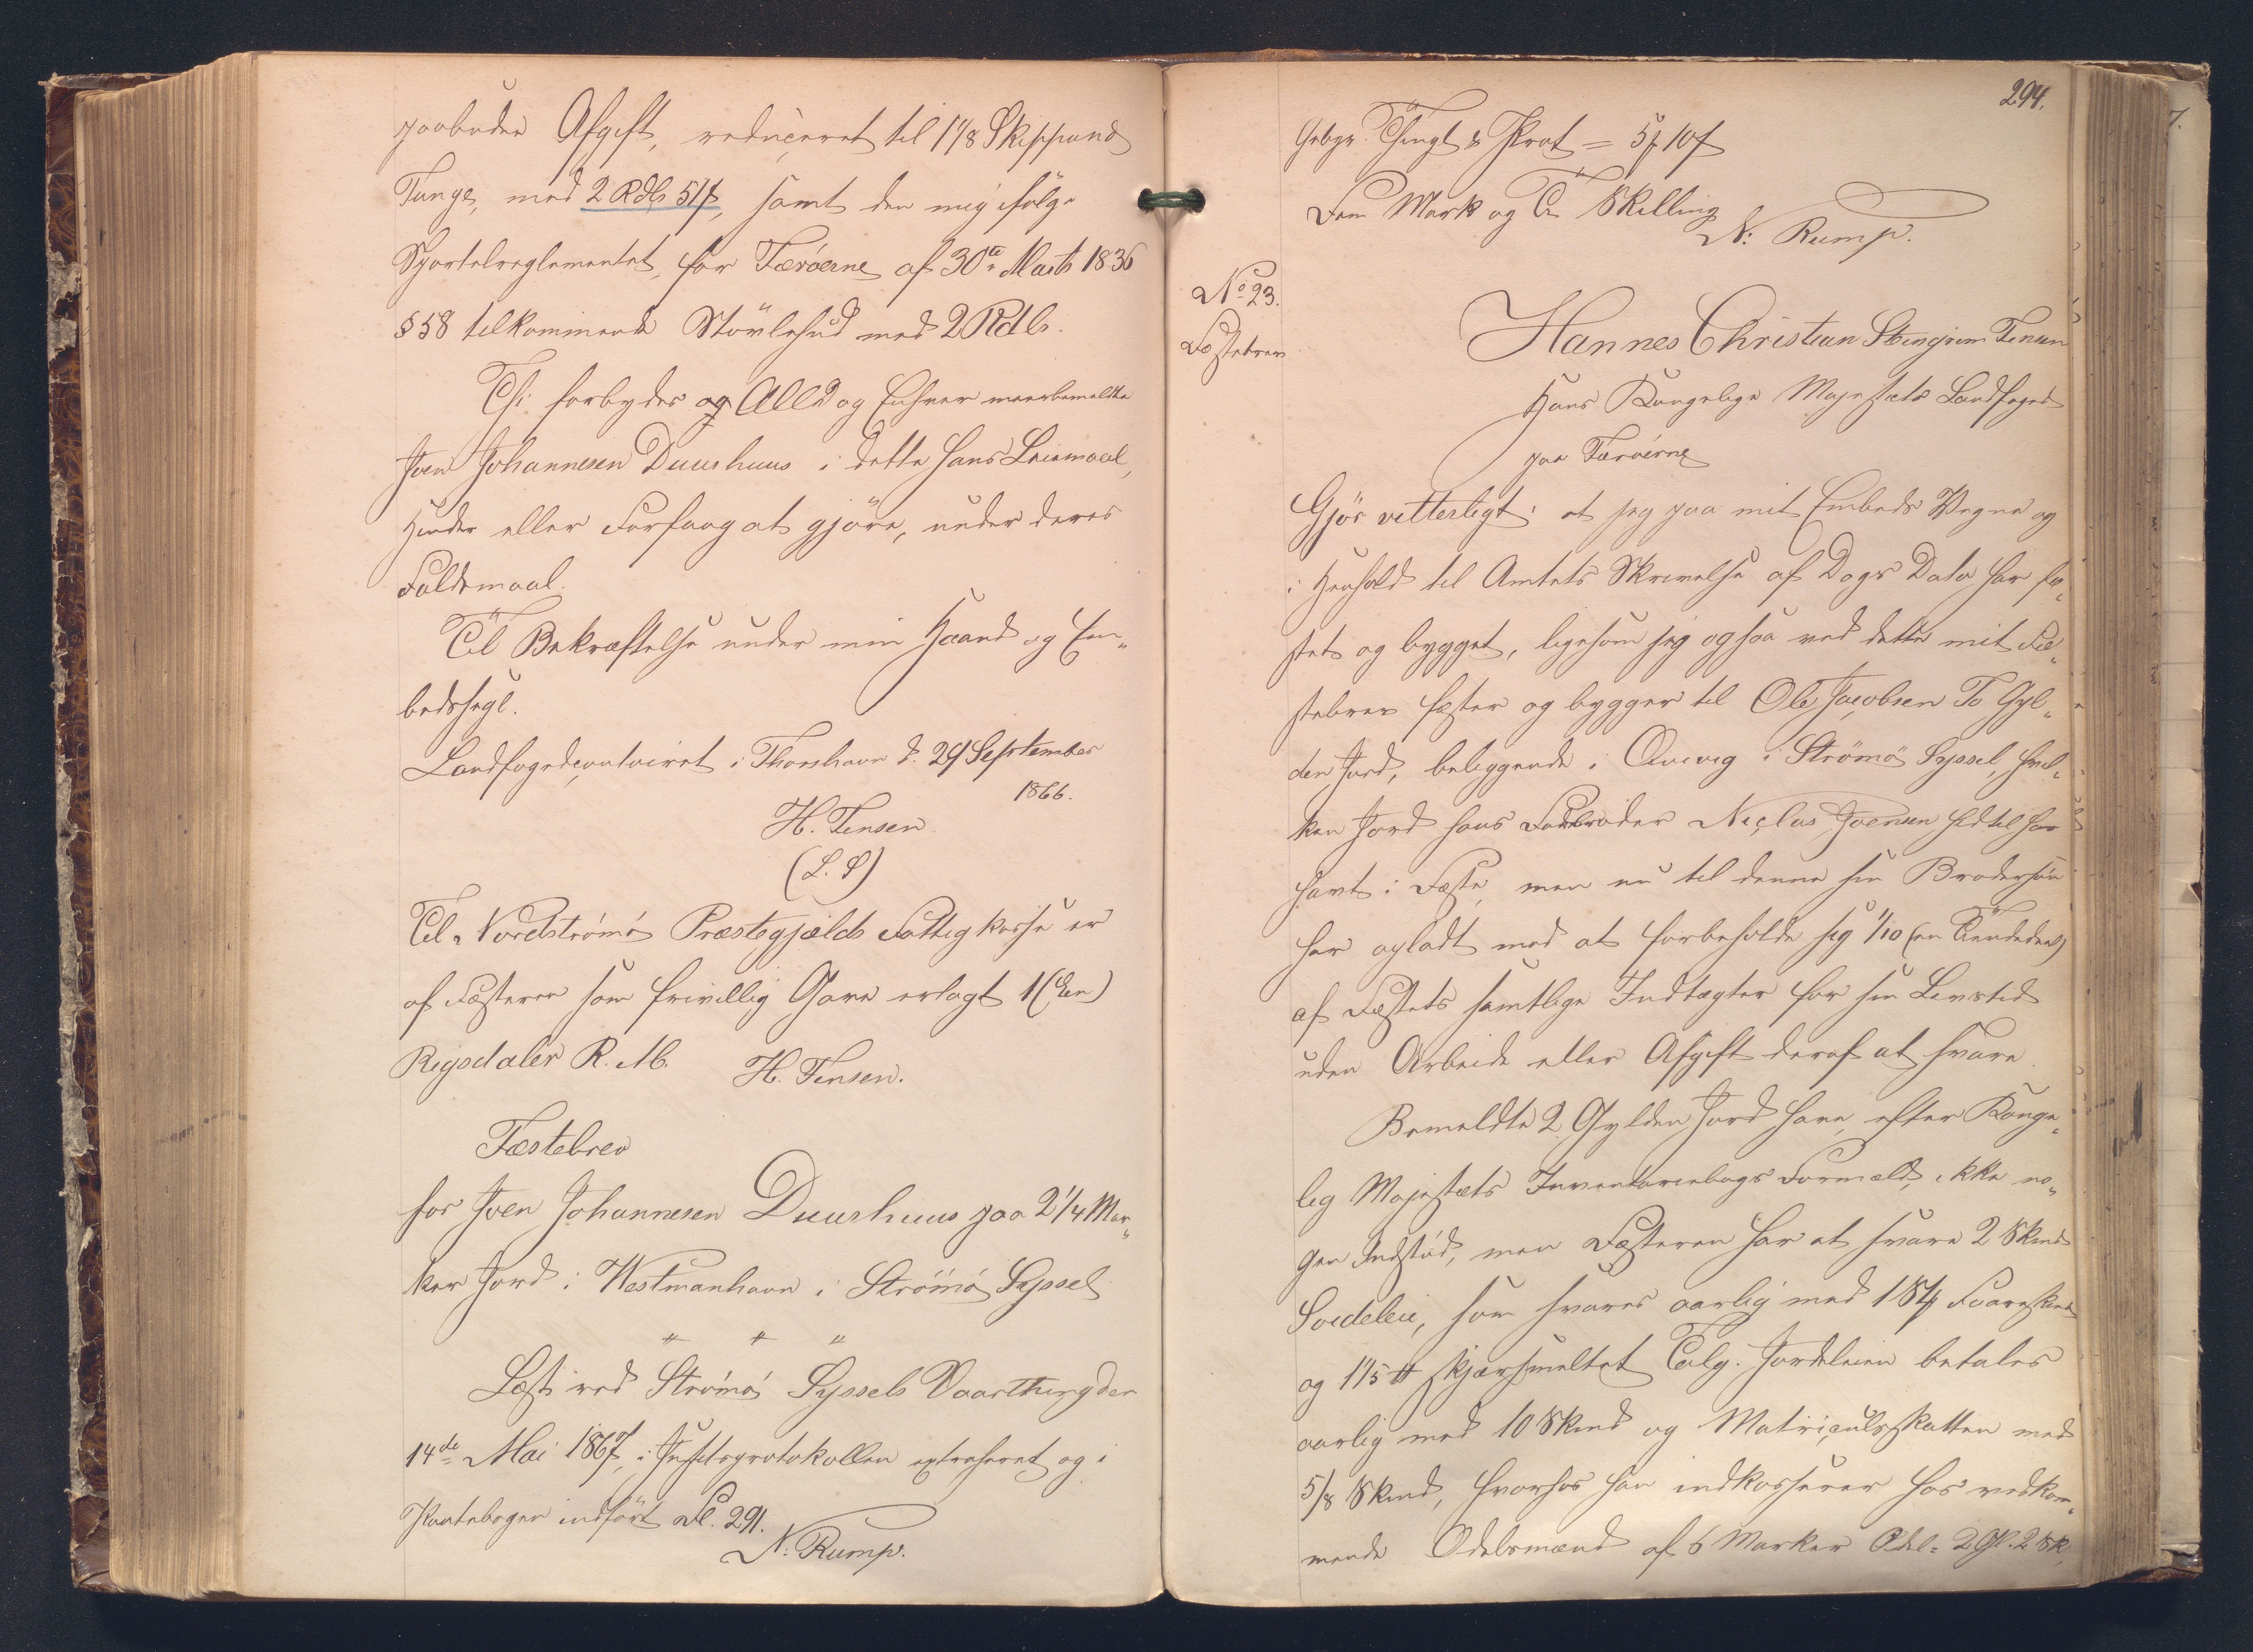 paabudne Afgift, reduceret til 1 1/8 Skippund
Tunge, med 2 Rdlr 51 s, samt den mig ifølge
Sportelreglementet for Færöerne af 30te Marts 1836
§ 58 tilkommende Stövlehud med 2 Rdlr.
Thi forbydes og Alle og Enhver meerbemeldte
Joen Johannesen Duurhuus i dette hans Leiemaal,
Hinder eller Forfang at gjöre, under deres
Faldsmaal.
Til Bekræftelse under min Haand og Em„
bedssegl.
Landfogedcontoiret i Thorshavn d. 29 September
1866.
H. Tensen
(L. S)
Til Nordströmö Præstegjælds Fattigkasse er
af Fæsteren som frivillig Gave erlagt 1 (Een)
Rigsdaler R. M. H. Tensen.
Fæstebrev
for Joen Johannesen Duurhuus paa 2 1/4 Mar„
ker Jord i Westmanhavn i Strömö Syssel
Læst ved Strömö Syssels Vaarthing den
14de Mai 1867, i Justitsprotokollen extraheret og i
Pantebogen indfört Fol. 291.
N: Rump.
294.
Gebyr. Thingl & Prot = 5 10 s
Fem Mark og Ti Skilling
N: Rump.
No 23.
Fæstebrev
Hannes Christian Steingrim Tensen
Hans Kongelige Majestæts Landfoged
paa Færöerne
Gjör vitterligt: at jeg paa mit Embeds Vegne og
i Henhold til Amtets Skrivelse af Dags Dato har fæ„
stet og bygget, ligesom jeg ogsaa ved dette mit Fæ„
stebrev fæster og bygger til Ole Jacobsen To Gyl„
den Jord, beliggende i Qvivig i Strömö Syssel, hvil„
ken Jord hans Farbroder Niclas Joensen hidtil har
havt i Fæste, men nu til denne sin Brodersön
har opladt mod at forbeholde sig 1/10 (en Tiendedeel)
af Fæstets samtlige Indtægter for sin Levetid
uden Arbeide eller Afgift deraf at svare.
Bemeldte 2 Gylden Jord have, efter Konge„
lig Majestæts Inventariebogs Formeld, ikke no„
gen Indstöd, men Fæsteren har at svare 2 Skind
Soedeleie, som svares aarlig med 1 Faareskind
og 1 1/5 ℔ skjærsmeltet Talg. Jordeleien betales
aarlig med 10 Skind og Matriculsskatten med
5/8 Skind, hvorhos han indkasserer hos vedkom„
mende Odelsmænd af 6 Marker Odel 2 Gl. 2 Sk,